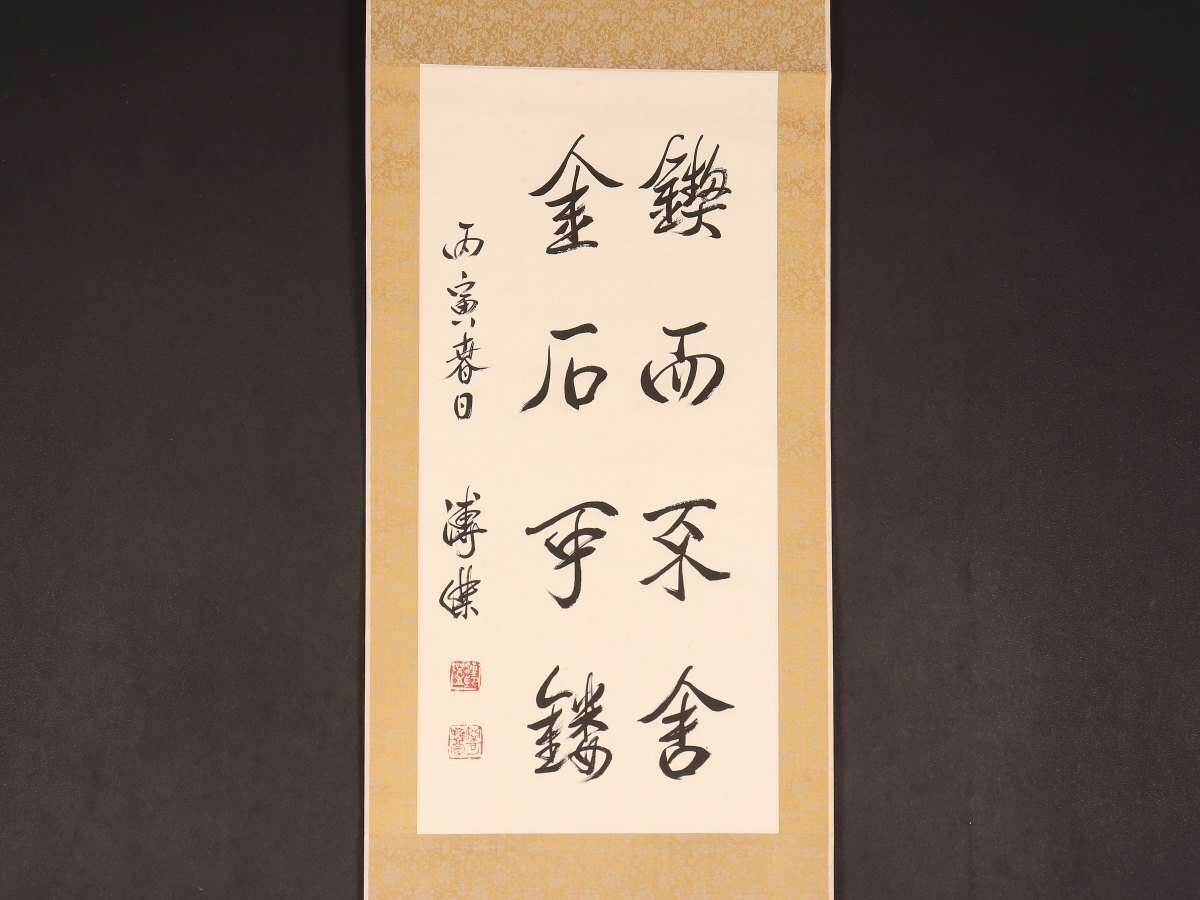 鍥而不舍
金石可鏤
丙寅春日 溥傑